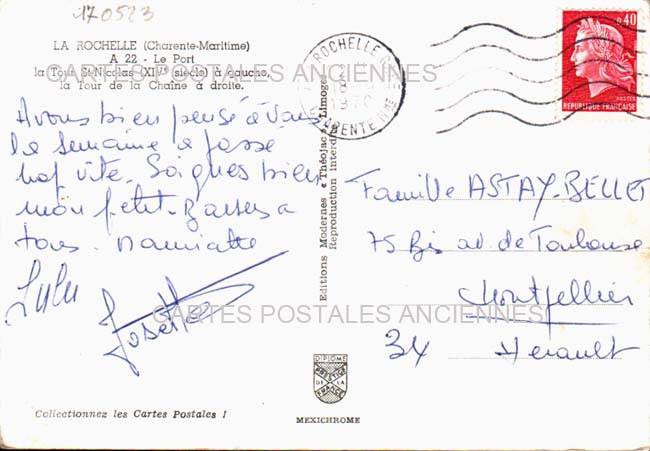 170523
LA ROCHELLE (Charente-Maritime)
A 22 - Le Port
la Tour St-Nicolas (XIVe siècle) à gauche,
la Tour de la Chaîne à droite.
CARTES POSTALES ANCIENNES
LA ROCHELLE
18
1970
CHARENTE Mme
0,40
POSTES
REPUBLIQUE FRANÇAISE
Avons bien pensé à vous
la semaine a passé
vite. Soignes bien
mon petit. Baisers a
tous. Mamiatte
Lulu
Josette
Editions Modernes « Théojac », Limoges
Reproduction interdite
Famille ASTAY-BELLET
75 Bis av. de Toulouse
Montpellier
34 Herault
CARTES POSTALES ANCIENNES
DIPLOME
PRESTIGE
DE LA
FRANCE
Collectionnez les Cartes Postales !
MEXICHROME